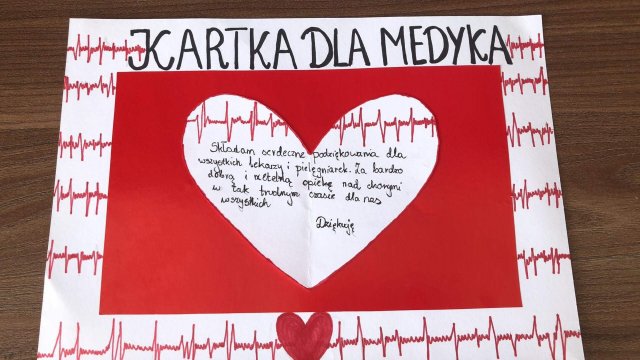 KARTKA DLA MEDYKA
Składam serdeczne podziękowania dla
wszystkich lekarzy i pielęgniarek. Za bardzo
dobrą i rzetelną opiekę nad chorymi
w tak trudnym czasie dla nas
wszystkich
Dziękuję